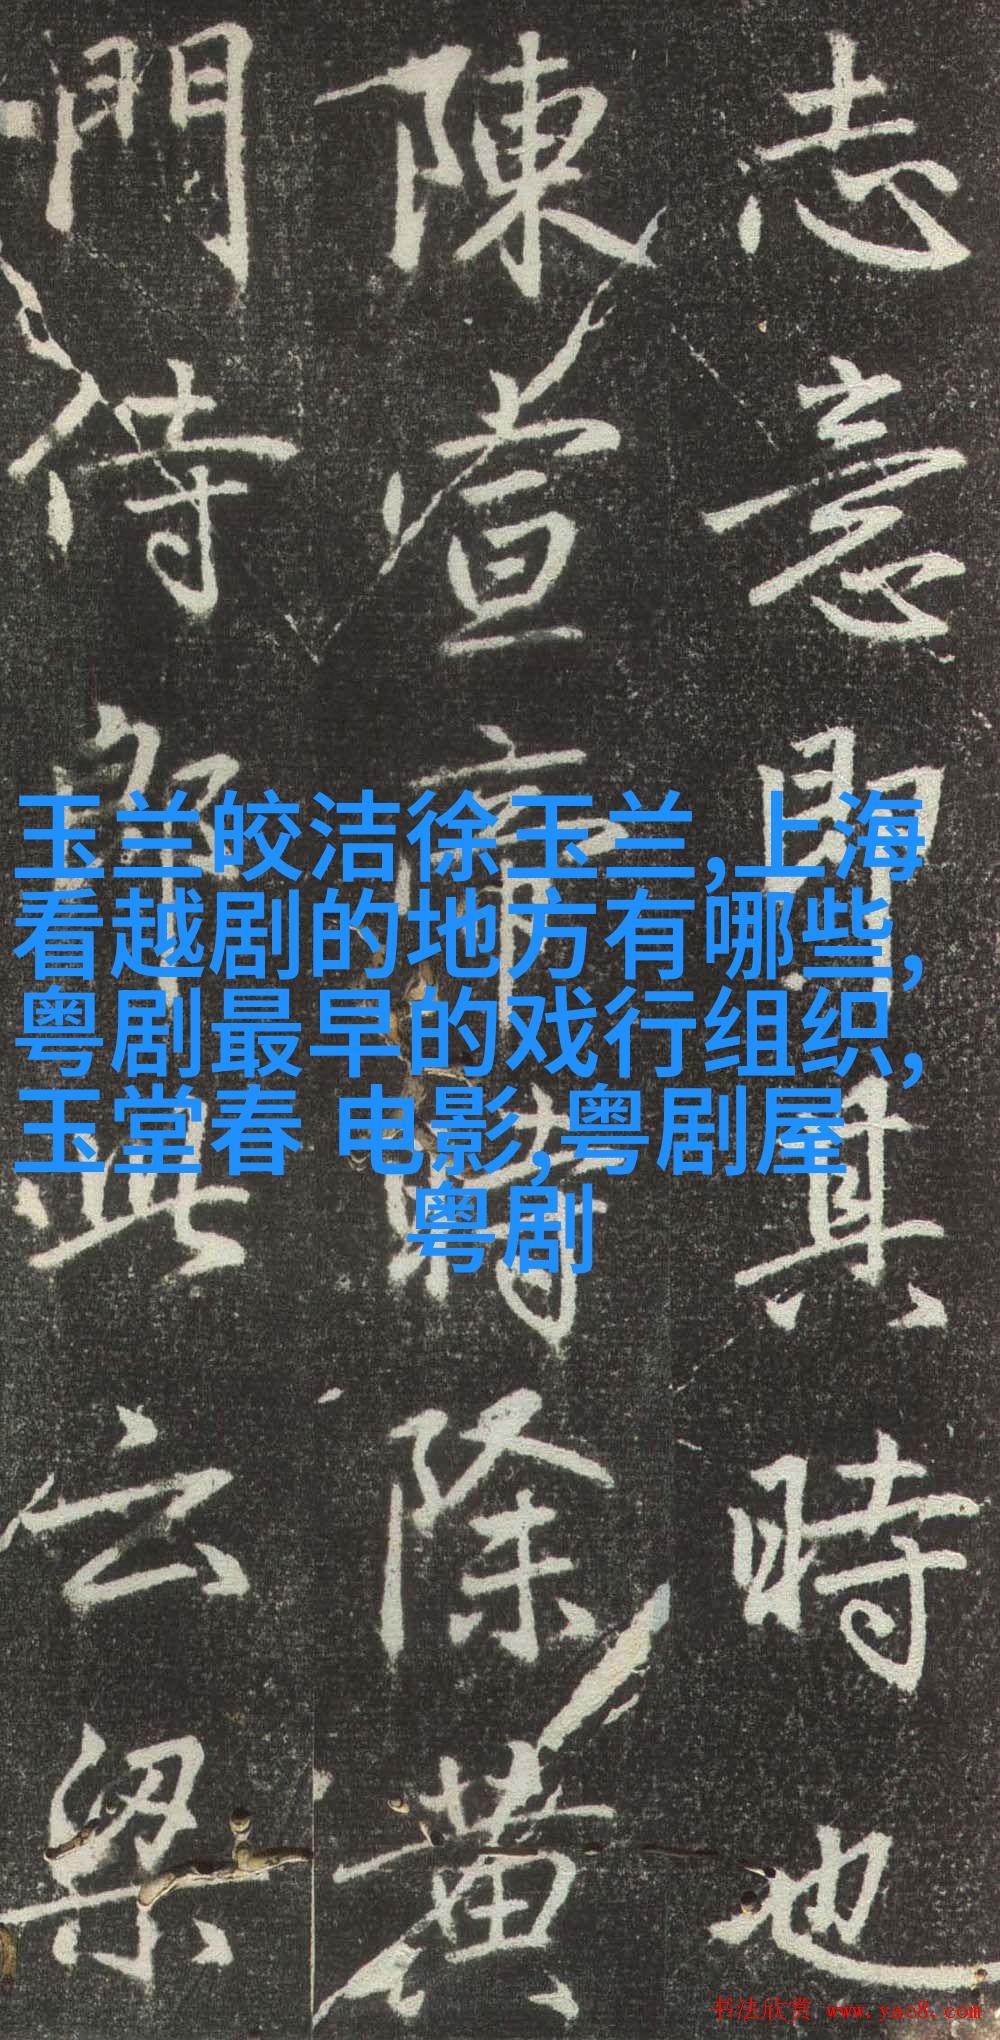 志意其時也
陳宣帝時除黃
門侍郎此云梁
玉兰皎洁徐玉兰,上海
看越剧的地方有哪些,
粤剧最早的戏行组织,
玉堂春 电影,粤剧屋
粤剧
书法欣赏 www.yac8.com